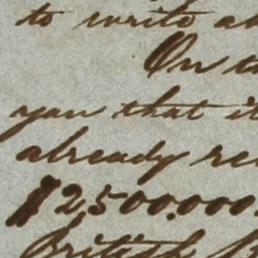 to write
On
you that it
already
$2,500,000.
British